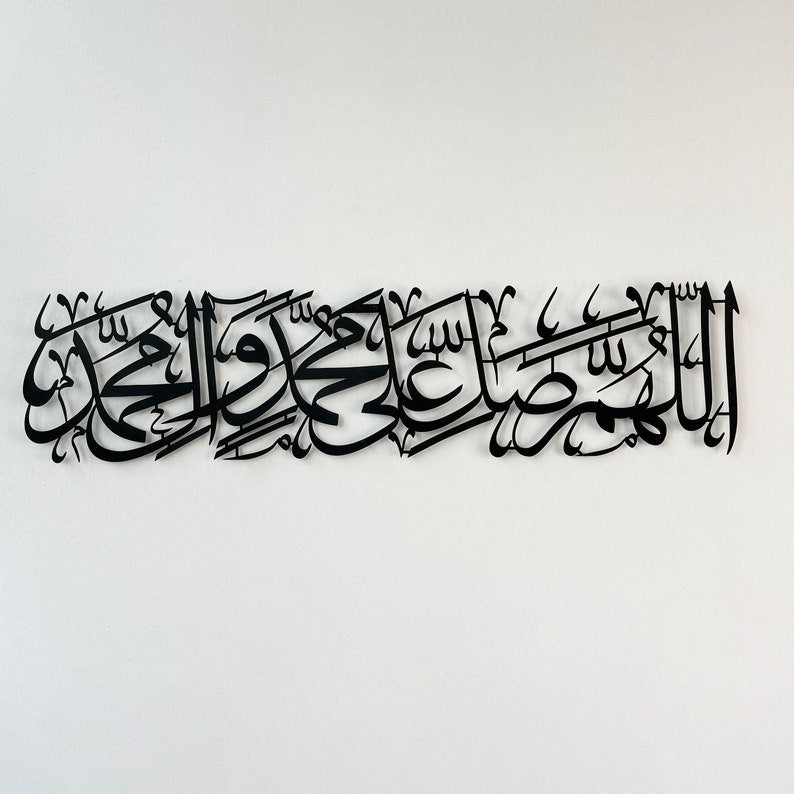 اللّٰهُمَّ صَلِّ عَلَىٰ مُحَمَّدٍ وَآلِ مُحَمَّدٍ